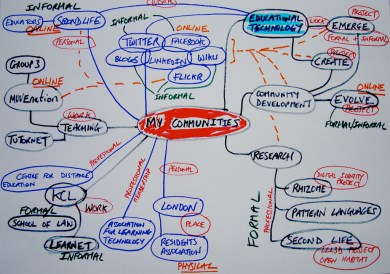 INFORMAL
EDUCATORS
SECONDLIFE
ONLINE
PERSONAL
INFORMAL
ONLINE
TWITTER
FACEBOOK
BLOGS
LINKEDIN
WIKIS
FLICKR
INFORMAL
EDUCATIONAL
TECHNOLOGY
WORK
PROJECT
EMERGE
FORMAL + INFORMAL
PROJECT
CREATE
GROUP 3
ONLINE
MUVEnation
WORK
TEACHING
TUTORNET
MY COMMUNITIES
COMMUNITY
DEVELOPMENT
ONLINE
EVOLVE
PROJECT
FORMAL/INFORMAL
RESEARCH
CENTRE FOR DISTANCE
EDUCATION
PROFESSIONAL
KCL
WORK
FORMAL
SCHOOL OF LAW
LEARNET
INFORMAL
PROFESSIONAL
MEMBERSHIP
ASSOCIATION
FOR LEARNING
TECHNOLOGY
PERSONAL
LONDON
PLACE
RESIDENTS
ASSOCIATION
PHYSICAL
FORMAL
PROFESSIONAL
DIGITAL IDENTITY
PROJECT
RHIZOME
PATTERN LANGUAGES
SECOND LIFE
PROJECT
OPEN HABITAT